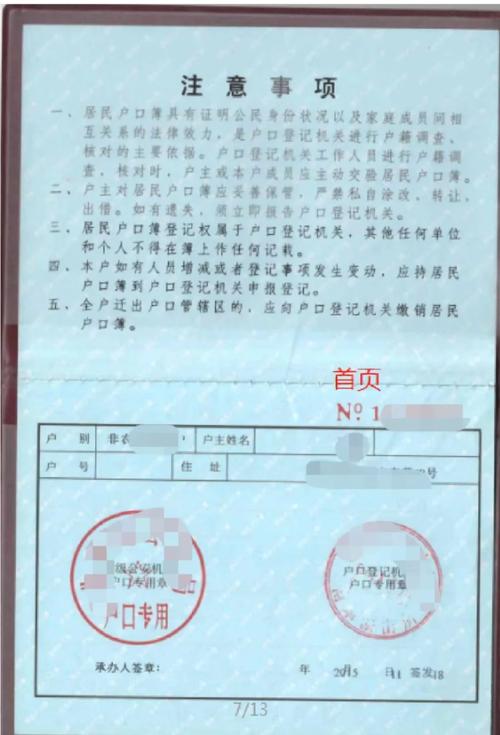 注意事项
一、居民户口簿具有证明公民身份状况以及家庭成员间相
互关系的法律效力，是户口登记机关进行户籍调查、
核对的主要依据。户口登记机关工作人员进行户籍调
查、核对时，户主或本户成员应主动交验居民户口簿。
二、户主对居民户口簿应妥善保管，严禁私自涂改、转让、
出借。如有遗失，须立即报告户口登记机关。
三、居民户口簿登记权属于户口登记机关，其他任何单位
和个人不得在簿上作任何记载。
四、本户如有人员增减或者登记事项发生变动，应持居民
户口簿到户口登记机关申报登记。
五、全户迁出户口管辖区的，应向户口登记机关缴销居民
户口簿。
首页
№ 1
户 别 非农 户主姓名
户 号 住 址 号
级公安机
户口专用章
户口专用
户口登记机
户口专用章
承办人签章： 年 2015 月 日 11 签发 18
7/13